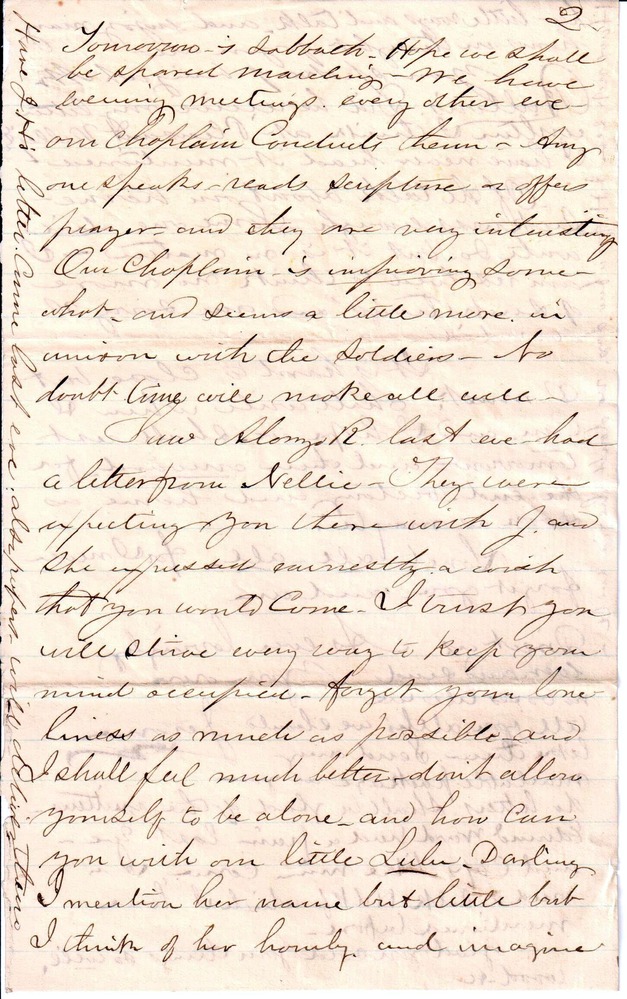 2
Tomorrow is Sabbath - Hope we shall
be spared marching - We have
evening meetings. every other eve -
our Chaplain Conducts them - Any
one speaks - reads scripture or offers
prayer - and they are very interesting
Our Chaplain - is improving some -
what - and seems a little more in
unison with the Soldiers - No
doubt time will make all well -
Saw Alonzo R. last eve - had
a letter from Nellie - They were
expecting you there with J. and
she expressed earnestly a wish
that you would Come - I trust you
will strive every way to keep your
mind occupied - forget your lone
liness as much as possible - and
I shall feel much better - don't allow
yourself to be alone - and how can
you with our little Lulu - Darling
I mention her name but little but
I think of her hourly and imagine
Have J. His letter Came last eve also paper will